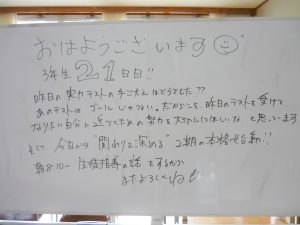 おはようございます
3年生 21日目!!
昨日の実力テストの手ごたえはどうでした??
あのテストは ゴールじゃない。だからこそ、昨日のテストを受けて
なりたい自分に近づくための努力を大切にしてほしいな、と思います
そして 今日からは "関わりを深める" 2期の本格始動!!
朝8:10~ 生徒指導の話をするから
またよろしくね